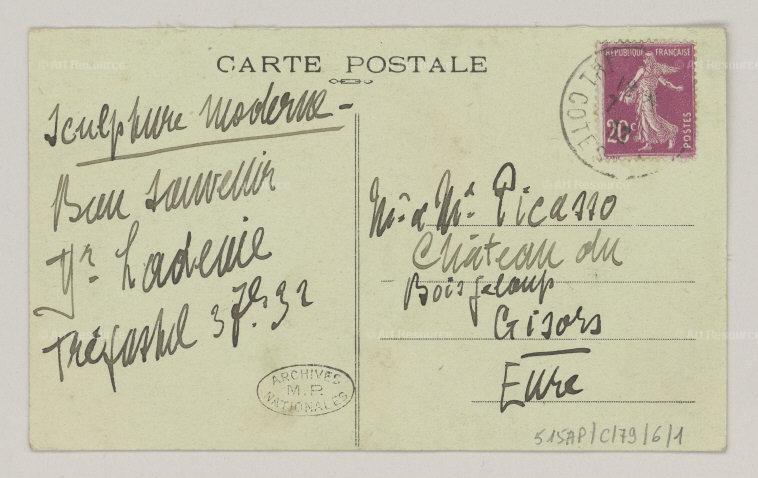 CARTE POSTALE
Sculpture moderne -
Bon souvenir
Dr.
Trégastel 3 7bre 32
RÉPUBLIQUE FRANÇAISE
20c
POSTES
COTES
Mr & Me Picasso
Château du
Boisgeloup
Gisors
Eure
ARCHIVES
M.P.
NATIONALES
515AP/C/79/6/1
© Art Resource